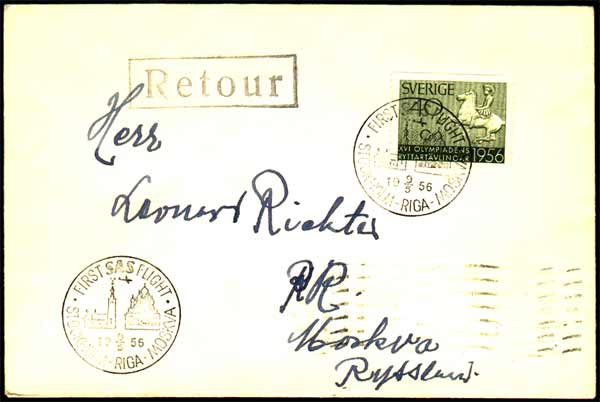 Retour
SVERIGE
40
XVI OLYMPIADENS
RYTTARTÄVLINGAR 1956
· FIRST SAS FLIGHT ·
19 9/5 56
STOCKHOLM-RIGA-MOSKVA
Herr
Leonard Richter
PR.
Moskva
Ryssland.
· FIRST SAS FLIGHT ·
19 9/5 56
STOCKHOLM-RIGA-MOSKVA